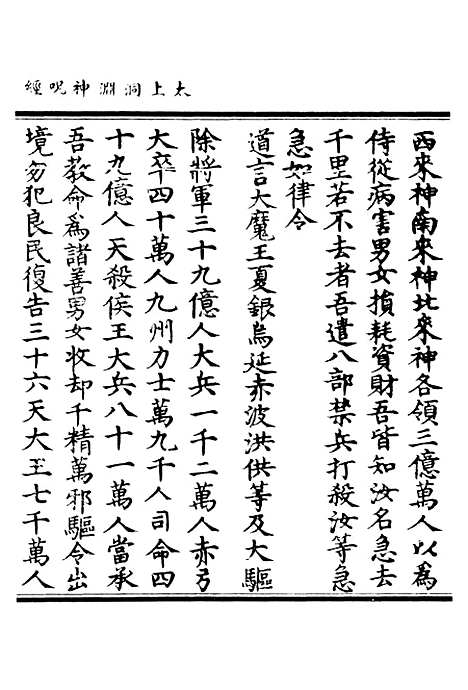 太上洞淵神呪經
西來神南來神北來神各領三億萬人以為
侍從病害男女損耗資財吾皆知汝名急去
千里若不去者吾遣八部禁兵打殺汝等急
急如律令
道言大魔王夏銀烏延赤波洪供等及大驅
除將軍三十九億人大兵一千二萬人赤弓
大卒四十萬人九州力士萬九千人司命四
十九億人天殺侯王大兵八十一萬人當承
吾教命為諸善男女收却千精萬邪驅令出
境勿犯良民復告三十六天大王七千萬人